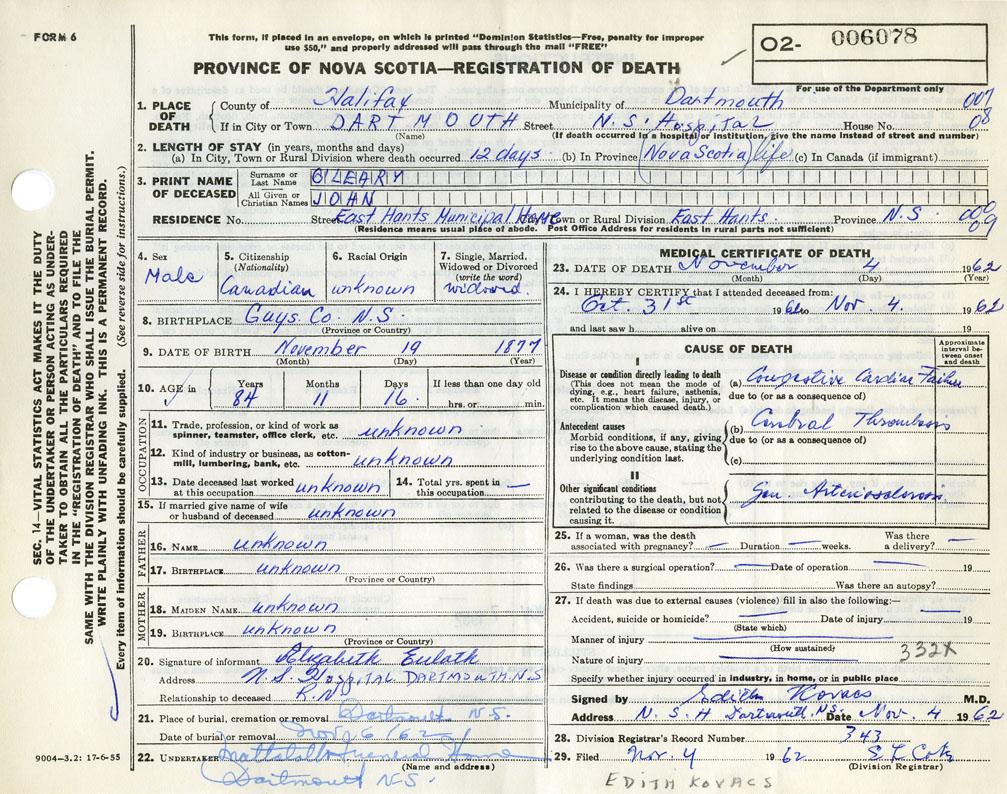 FORM 6
This form, if placed in an envelope, on which is printed "Dominion Statistics—Free, penalty for improper
use $50," and properly addressed will pass through the mail "FREE"
O2- 006078
PROVINCE OF NOVA SCOTIA—REGISTRATION OF DEATH
For use of the Department only
1. PLACE OF DEATH County of Halifax Municipality of Dartmouth 007
If in City or Town DARTMOUTH Street N.S. Hospital House No. 08
(Name) (If death occurred in a hospital or institution, give the name instead of street and number)
2. LENGTH OF STAY (in years, months and days)
(a) In City, Town or Rural Division where death occurred 12 days (b) In Province (Nova Scotia) life (c) In Canada (if immigrant)
3. PRINT NAME OF DECEASED Surname or Last Name O'LEARY
All Given or Christian Names JOHN
RESIDENCE No. Street East Hants Municipal Home City, Town or Rural Division East Hants. Province N.S. 000
09
(Residence means usual place of abode. Post Office Address for residents in rural parts not sufficient)
4. Sex
Male
5. Citizenship
(Nationality)
Canadian
6. Racial Origin
unknown
7. Single, Married,
Widowed or Divorced
(write the word)
widowed.
8. BIRTHPLACE Guys. Co. N.S.
(Province or Country)
9. DATE OF BIRTH November 19 1877
(Month) (Day) (Year)
10. AGE in Years Months Days If less than one day old
84 11 16. hrs. or min.
OCCUPATION
11. Trade, profession, or kind of work as
spinner, teamster, office clerk, etc. unknown
12. Kind of industry or business, as cotton-
mill, lumbering, bank, etc. unknown
13. Date deceased last worked
at this occupation unknown
14. Total yrs. spent in
this occupation —
15. If married give name of wife
or husband of deceased unknown
FATHER
16. NAME unknown
17. BIRTHPLACE unknown
(Province or Country)
MOTHER
18. MAIDEN NAME unknown
19. BIRTHPLACE unknown
(Province or Country)
20. Signature of informant Elizabeth
Address N.S. Hospital DARTMOUTH N.S
Relationship to deceased R.N.
21. Place of burial, cremation or removal Dartmouth N.S.
Date of burial or removal Nov 6/62
22. UNDERTAKER Funeral Home
(Name and address)
Dartmouth N.S.
MEDICAL CERTIFICATE OF DEATH
23. DATE OF DEATH November 4 1962
(Month) (Day) (Year)
24. I HEREBY CERTIFY that I attended deceased from:
Oct. 31st 1962 to Nov. 4. 1962
and last saw h alive on 19
CAUSE OF DEATH
Approximate
interval be-
tween onset
and death
I
Disease or condition directly leading to death
(This does not mean the mode of
dying, e.g., heart failure, asthenia,
etc. It means the disease, injury, or
complication which caused death.)
(a) Congestive Cardiac Failure
due to (or as a consequence of)
Antecedent causes
Morbid conditions, if any, giving
rise to the above cause, stating the
underlying condition last.
(b) Cerebral Thrombosis
due to (or as a consequence of)
(c)
II
Other significant conditions
contributing to the death, but not
related to the disease or condition
causing it.
Gen. Arteriosclerosis
25. If a woman, was the death
associated with pregnancy? — Duration — weeks. Was there
a delivery? —
26. Was there a surgical operation? — Date of operation — 19
State findings Was there an autopsy?
27. If death was due to external causes (violence) fill in also the following:—
Accident, suicide or homicide? — Date of injury — 19
(State which)
Manner of injury —
(How sustained)
Nature of injury — 332X
Specify whether injury occurred in industry, in home, or in public place
Signed by Edith Kovacs M.D.
Address N.S.H Dartmouth, N.S. Date Nov. 4 1962
28. Division Registrar's Record Number 343
29. Filed Nov. 4 1962
(Division Registrar)
EDITH KOVACS
SEC. 14—VITAL STATISTICS ACT MAKES IT THE DUTY
OF THE UNDERTAKER OR PERSON ACTING AS UNDER-
TAKER TO OBTAIN ALL THE PARTICULARS REQUIRED
IN THE "REGISTRATION OF DEATH" AND TO FILE THE
SAME WITH THE DIVISION REGISTRAR WHO SHALL ISSUE THE BURIAL PERMIT.
WRITE PLAINLY WITH UNFADING INK. THIS IS A PERMANENT RECORD.
Every item of information should be carefully supplied. (See reverse side for instructions.)
9004—3.2: 17-6-55